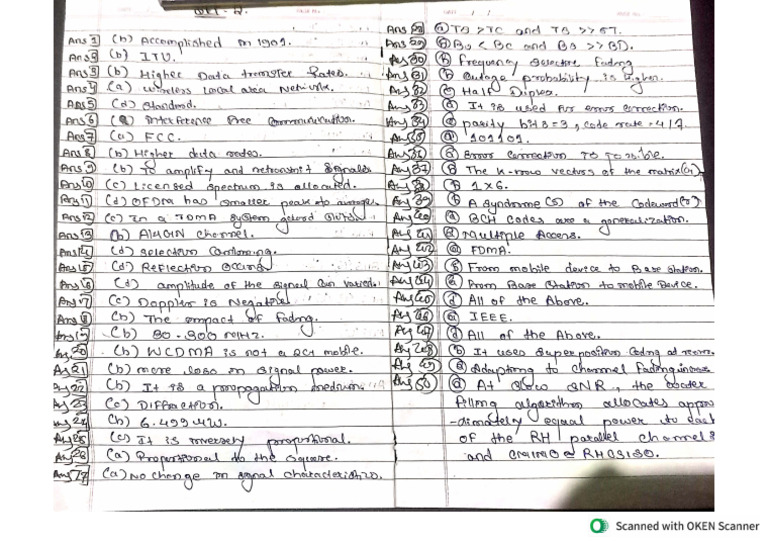 Ans 1 (b) Accomplished in 1901.
Ans 2 (b) ITU.
Ans 3 (b) Higher Data transfer Rates.
Ans 4 (a) wireless Local area Network.
Ans 5 (d) Standard.
Ans 6 Interference Free Communication.
Ans 7 (a) FCC.
Ans 8 (b) Higher data
Ans 9 (b) To amplify and retransmit Signals
Ans 10 (c) Licensed spectrum is allocated.
Ans 11 (d) OFDM has smaller peak to
Ans 12 (c) In a TDMA system guard
Ans 13 (b) Channel.
Ans 14 (d) Selection Combining.
Ans 15 (d) Reflection occurs
Ans 16 (d) amplitude of the signal can
Ans 17 (c) Doppler is Negative
Ans 18 (b) The impact of Fading.
(b) 800-900 MHz.
Ans 20 (b) WCDMA is not a mobile.
Ans 21 (b) more loss in signal power.
Ans 22 (b) It is a propagation medium.
Ans 23 (c) Diffraction.
Ans 24 (b) 6.499
Ans 25 (c) It is inversely proportional.
Ans 26 (a) Proportional to the square.
Ans 27 (a) No change in signal characteristics.
Ans 28 and
Ans 29 Bs < Bc and Bs >> BD.
Ans 30 Frequency Selective Fading
Ans 31 (b) outage probability is higher.
Ans 32 Half Dipole.
Ans 33 It is used for error correction.
Ans 34 parity bits=3, code rate=4/7.
Ans 35 101101.
Ans 36 Error Correction
Ans 37 The K-row vectors of the matrix(G).
Ans 38 1×6.
Ans 39 (b) A Syndrome(S) of the Codeword
Ans 40 BCH Codes are a generalization.
Ans 41 Multiple Access.
Ans 42 FDMA.
Ans 43 From mobile device to Base Station.
Ans 44 From Base Station to mobile Device.
Ans 45 (d) All of the Above.
Ans 46 IEEE.
Ans 47 (d) All of the Above.
Ans 48 (b) It uses Superposition Coding at
Ans 49 Adapting to channel Fading
Ans 50 (d) At slow SNR, the water
filling algorithm allocates appro
-ximately equal power to each
of the RH parallel channels
and
Scanned with OKEN Scanner